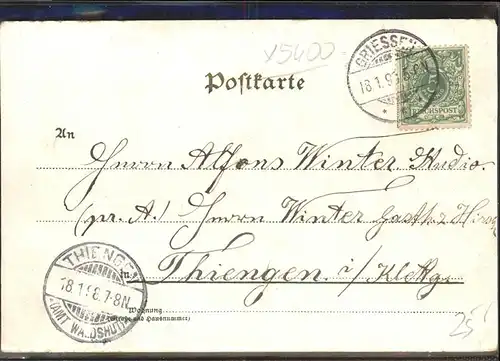 x5400
GRIESSEN
18.1.9
Postkarte
REICHSPOST
An
Herrn Alfons Winter Studio.
(pr. A.) Herrn Winter Gasth. z. Hirsch
in Thiengen i/Klettg.
THIENGEN
18.1.98.7-8N.
(AMT WALDSHUT)
Wohnung
(Straße und Hausnummer)
25